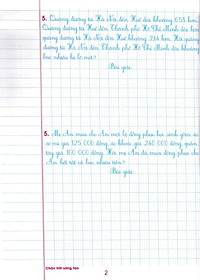 5. Quãng đường từ Hà Nội đến Huế dài khoảng 658 km.
Quãng đường từ Huế đến Thành phố Hồ Chí Minh dài hơn
quãng đường từ Hà Nội đến Huế khoảng 394 km. Hỏi quãng
đường từ Hà Nội đến Thành phố Hồ Chí Minh dài khoảng
bao nhiêu ki lô mét?
Bài giải:
5. Mẹ An mua cho An một bộ đồng phục học sinh gồm áo
sơ mi giá 125 000 đồng, áo khoác giá 240 000 đồng, quần
tây giá 160 000 đồng. Hỏi mẹ An đã mua đồng phục cho
An hết tất cả bao nhiêu tiền?
Bài giải:
2